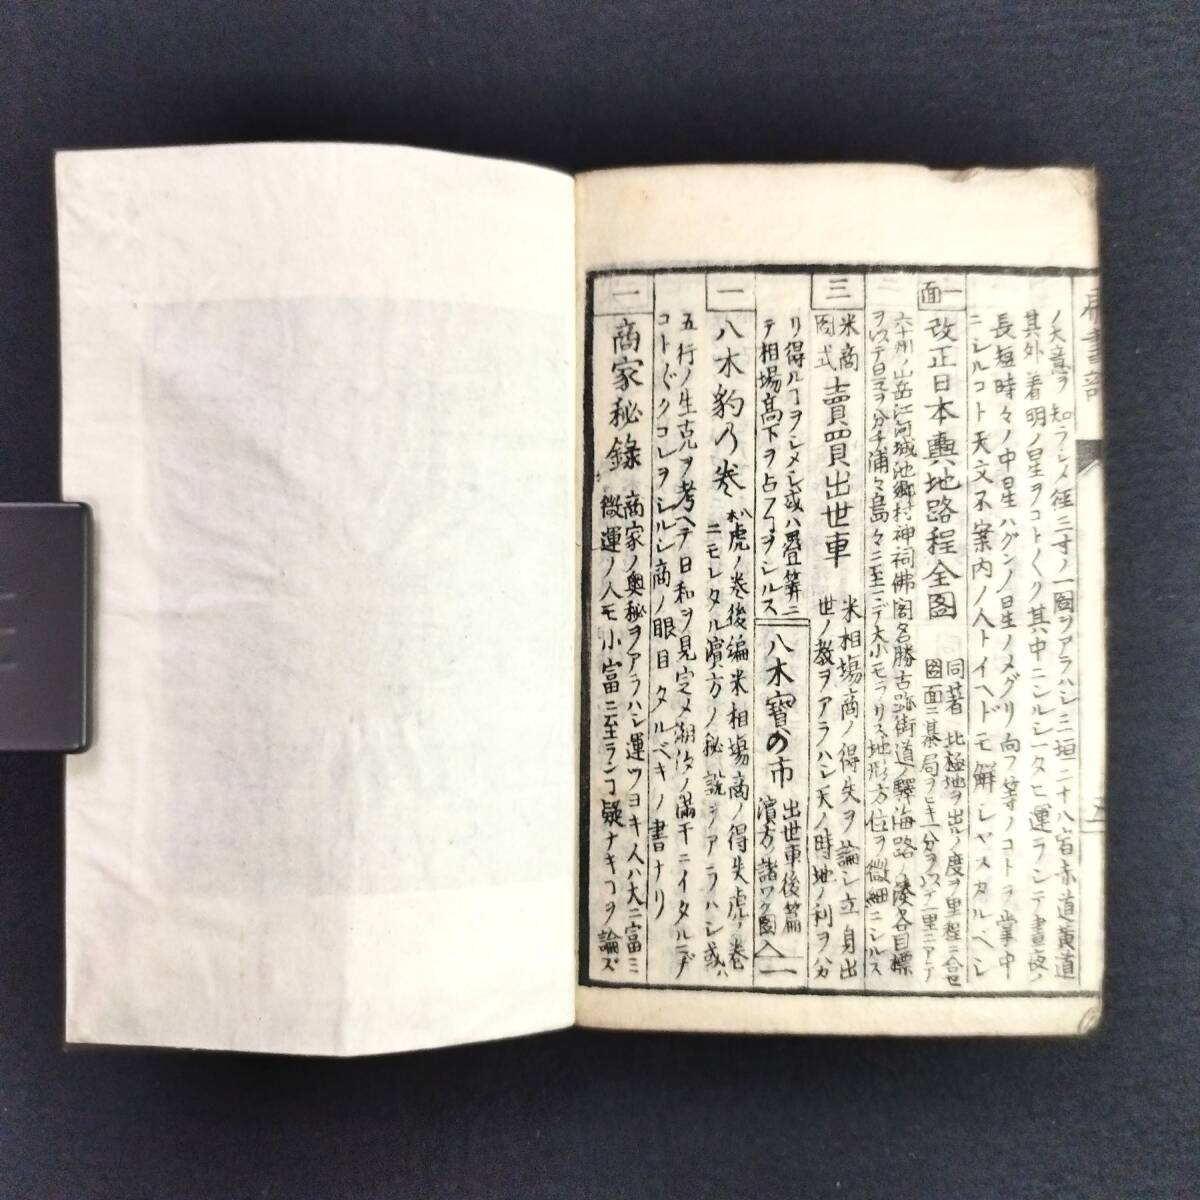 ノ大意ヲ知ラシメ径三寸ノ一圖ヲアラハシ三垣二十八宿赤道黄道
其外着明ノ星ヲコト〲ク其中ニシルシ一タヒ運ランテ晝夜ノ
長短時々ノ中星ハ
星ノメグリ向フ
ノコトヲ掌中
ニシルコト天文不案内ノ人トイヘドモ解シヤスカルベシ
一面
改正日本輿地路程全图
同著 北極地ヲ出ルノ度ヲ里程ニ合セ
圖面ニ
ヲヒキ一分ヲ以テ一里ニアテ
六十州ノ山岳江河城池郷村神祠佛閣名勝古跡街道ノ驛海路ノ湊各目標
ヲ以テ
浦々島々ニ至ニデ大小モラサス地形方位ヲ微細ニシルス
三
米商
圖式
賣買出世車
米相場商ノ得失ヲ論シ立身出
世ノ教ヲアラハシ天ノ時地ノ利ヲハカ
リ得ルヿヲシメシ或ハ畳算ニ
テ相場高下ヲ占フヿヲシルス
八木寳の市
出世車後篇
濱方諸ワク圖入
一
一
八木豹乃巻
八木虎ノ巻後編米相場商ノ得失虎ノ巻
ニモレタル濱方ノ秘説ヲアラハシ或ハ
五行ノ生克ヲ考ヘテ日和ヲ見定メ潮汐ノ満干ニイタルニデ
コト〲クコレヲシルシ商ノ眼目タルベキノ書ナリ
一
商家秘録
商家ノ奥秘ヲアラハシ運ツヨキ人ハ大ニ富ミ
微運ノ人モ小富ニ至ランヿ疑ナキヿヲ論ズ